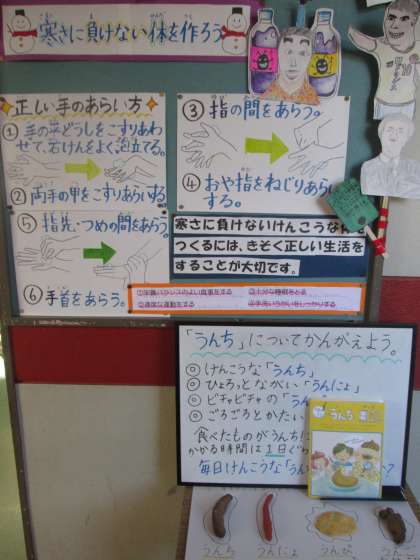 寒さに負けない体を作ろう
正しい手のあらい方
①手の平どうしをこすりあわ
せて、石けんをよく泡立てる。
②両手の甲をこすりあいする
⑤指先・つめの間をあらう。
⑥手首をあらう。
③指の間をあらう。
④おや指をねじりあらい
する。
寒さに負けないけんこうな体を
つくるには、きそく正しい生活を
することが大切です。
①栄養バランスのよい食事をする
②適度な運動をする
③十分な睡眠をとる
④手洗いうがいをしっかりする
「うんち」についてかんがえよう。
◎けんこうな「うんち」
◎ひょろっとながい「うんにょ」
◎ビチャビチャの「うん
◎ごろごろとかたい
食べたものがうんち
かかる時間は1日ぐら
毎日けんこうな「うん か?
うんち
うんち
うんにょ